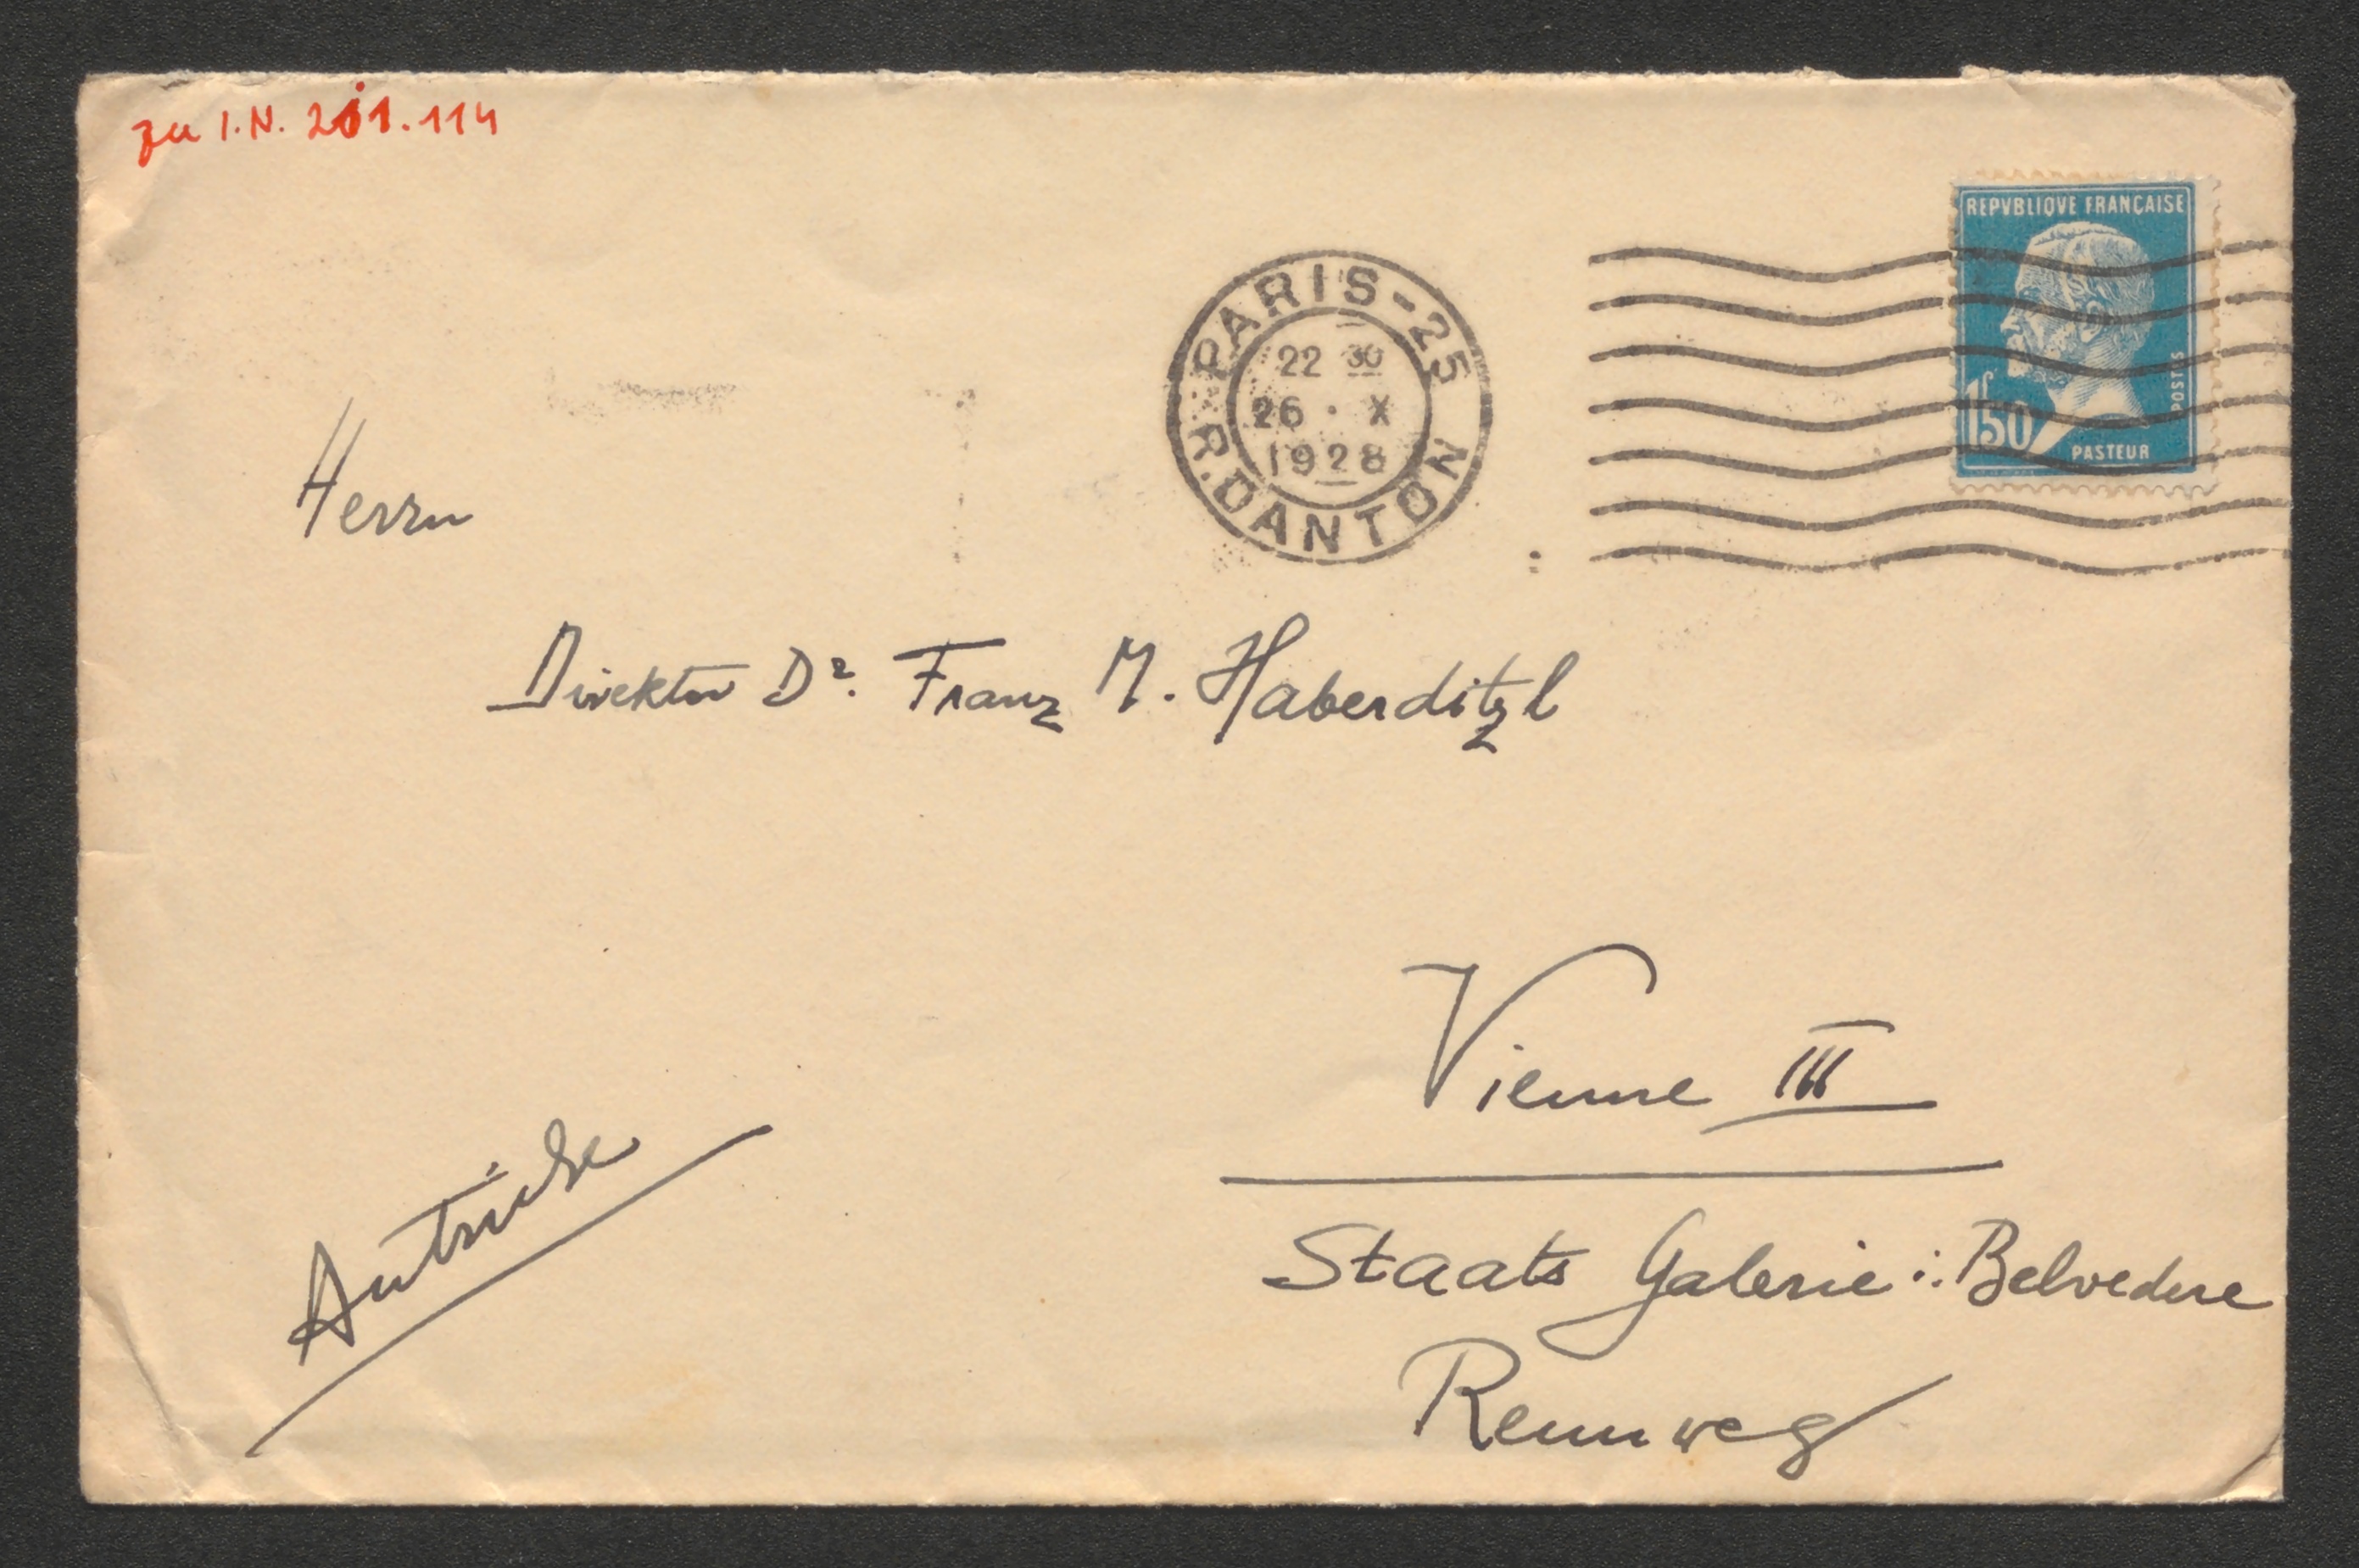 zu I.N. 201.114
REPVBLIQVE FRANÇAISE
POSTES
1f50
PASTEUR
PARIS-25
22 30
26 · X
1928
R. DANTON
Herrn
Direktor Dr. Franz M. Haberditzl
Vienne III
Autriche
Staats Galerie i. Belvedere
Rennweg